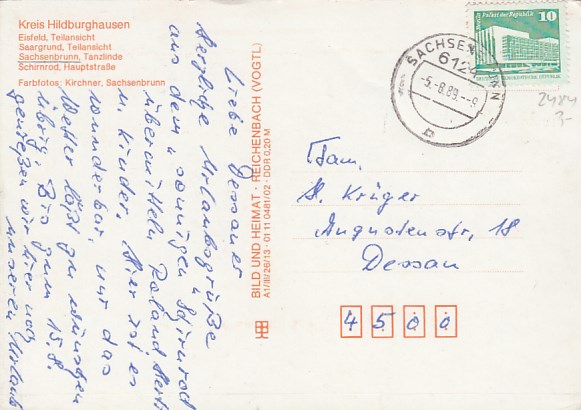 Kreis Hildburghausen
Eisfeld, Teilansicht
Saargrund, Teilansicht
Sachsenbrunn, Tanzlinde
Schirnrod, Hauptstraße
Farbfotos: Kirchner, Sachsenbrunn
Liebe Dessauer
Herzliche Urlaubsgrüße
aus dem "sonnigen"
übermitteln Roland
u. Kinder. Hier ist es
wunderbar, nur das
Wetter läßt zu wünschen
übrig. Bis zum 15.8.
genießen wir hier noch
unseren Urlaub
BILD UND HEIMAT · REICHENBACH (VOGTL)
A1/III/26/13 · 01 11 0481/02 · DDR 0,20 M
Palast der Republik
10
SACHSENBRUNN
6124
-5.-8.89.-9
a
2484
3-
Fam.
H. Krüger
Augustenstr. 18
Dessau
4500